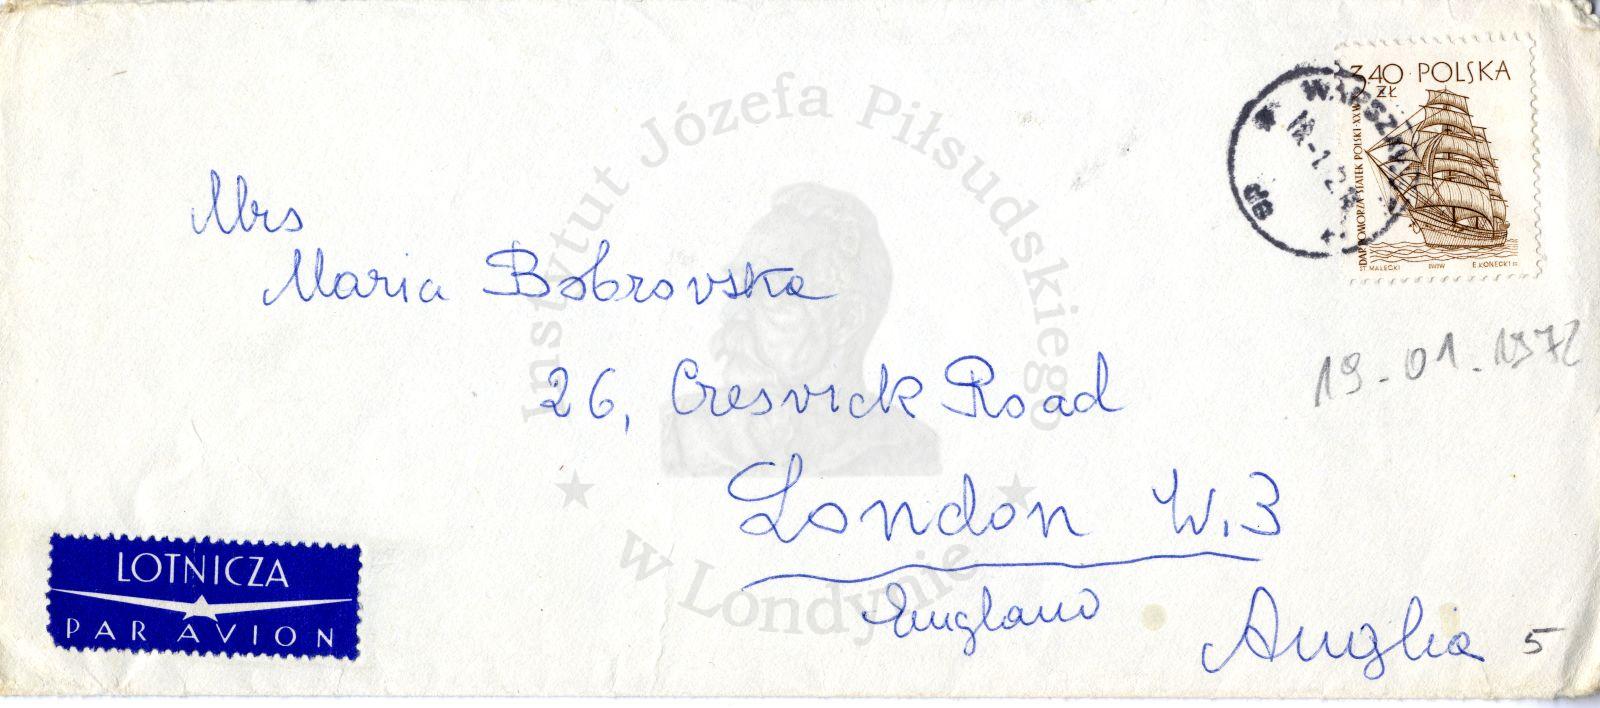 3,40 POLSKA
ZŁ
DAR POMORZA STATEK POLSKI XX W
ST. MAŁECKI PWPW E. KONECKI sc.
WARSZAWA
Instytut Józefa Piłsudskiego
w Londynie
Mrs
Maria Bobrovska
26, Cresvick Road
London W.3
England
Anglia
19-01-1972
5
LOTNICZA
PAR AVION